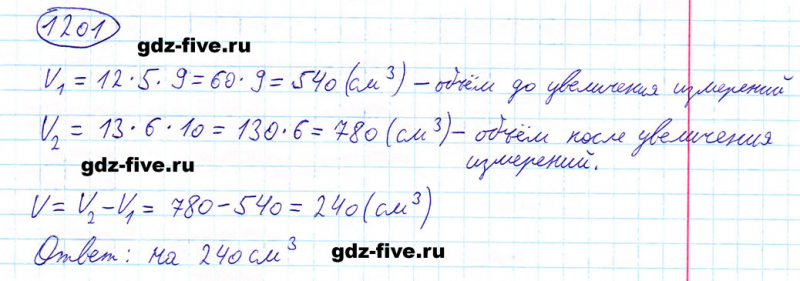 1201
gdz-five.ru
V₁ = 12·5·9 = 60·9 = 540 (см³) – объём до увеличения измерений
V₂ = 13·6·10 = 130·6 = 780 (см³) – объём после увеличения
измерений.
gdz-five.ru
V = V₂ – V₁ = 780 – 540 = 240 (см³)
Ответ: на 240 см³
gdz-five.ru